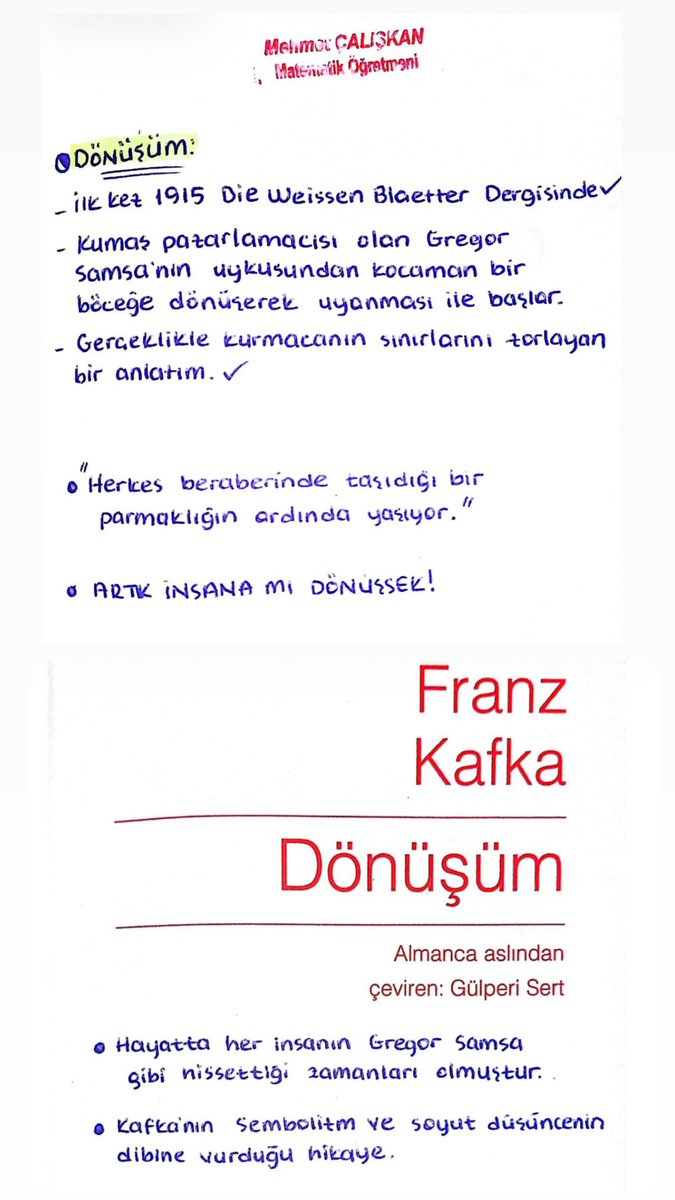 Mehmet ÇALIŞKAN
Matematik Öğretmeni
DÖNÜŞÜM:
- İlk kez 1915 Die Weissen Blaetter Dergisinde✓
- Kumaş pazarlamacısı olan Gregor
Samsa'nın uykusundan kocaman bir
böceğe dönüşerek uyanması ile başlar.
- Gerçeklikle kurmacanın sınırlarını zorlayan
bir anlatım. ✓
"Herkes beraberinde taşıdığı bir
parmaklığın ardında yaşıyor."
ARTIK İNSANA MI DÖNÜŞSEK!
Franz
Kafka
Dönüşüm
Almanca aslından
çeviren: Gülperi Sert
Hayatta her insanın Gregor Samsa
gibi hissettiği zamanları olmuştur.
Kafka'nın Sembolizm ve soyut düşüncenin
dibine vurduğu hikaye.